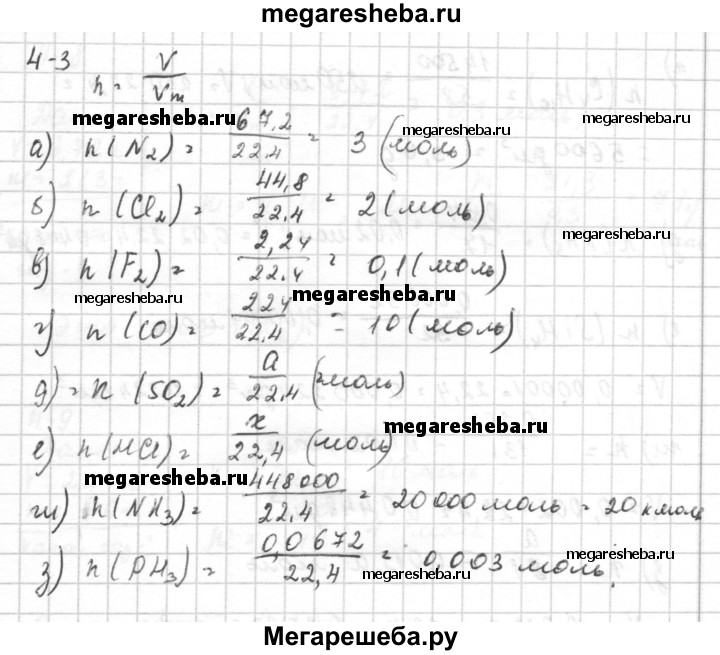 megaresheba.ru
4-3 n = V/Vm
megaresheba.ru
а) n(N₂) = 67,2/22.4 = 3 (моль)
megaresheba.ru
megaresheba.ru
б) n(Cl₂) = 44,8/22.4 = 2 (моль)
megaresheba.ru
megaresheba.ru
в) n(F₂) = 2,24/22.4 = 0,1 (моль)
megaresheba.ru
megaresheba.ru
г) n(CO) = 224/22,4 = 10 (моль)
megaresheba.ru
д) = n(SO₂) = a/22.4 (моль)
megaresheba.ru
е) n(HCl) = x/22,4 (моль)
megaresheba.ru
ж) n(NH₃) = 448000/22.4 = 20 000 моль = 20 кмоль
megaresheba.ru
з) n(PH₃) = 0,0672/22,4 = 0,003 моль.
megaresheba.ru
megaresheba.ru
Мегарешеба.ру